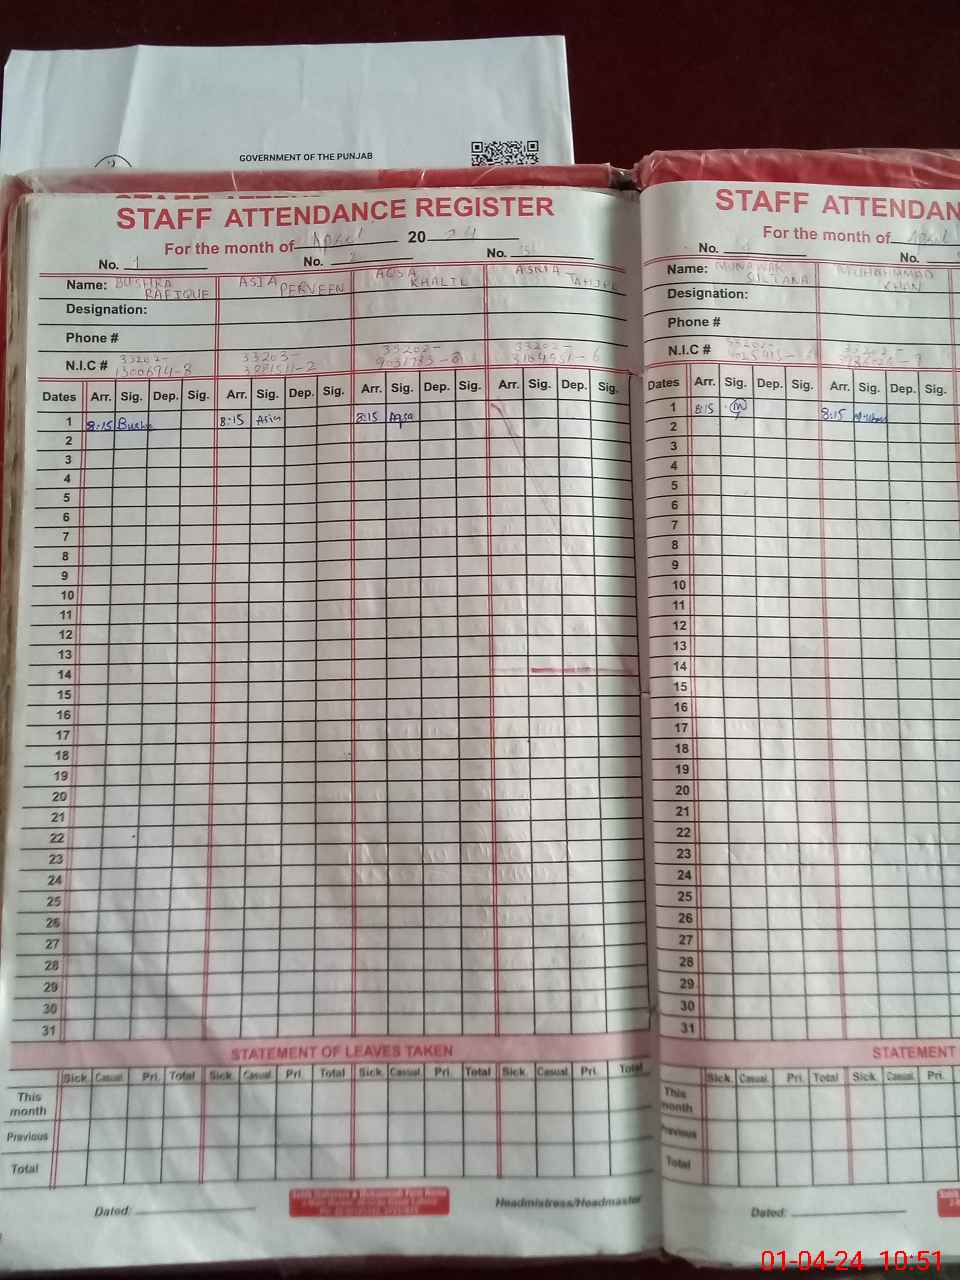 GOVERNMENT OF THE PUNJAB
STAFF ATTENDANCE REGISTER
For the month of April 2024
No. 1 No. 2 No. 3
Name: BUSHRA RAFIQUE ASIA PERVEEN AQSA KHALIL ASMA
Designation:
Phone #
N.I.C # 33202- 33203- 33202- 33202-
Dates Arr. Sig. Dep. Sig. Arr. Sig. Dep. Sig. Arr. Sig. Dep. Sig. Arr. Sig. Dep. Sig.
1 8:15 8:15 Asia 8:15 Aqsa
2
3
4
5
6
7
8
9
10
11
12
13
14
15
16
17
18
19
20
21
22
23
24
25
26
27
28
29
30
31
STATEMENT OF LEAVES TAKEN
Sick. Casual. Pri. Total Sick. Casual. Pri. Total Sick. Casual. Pri. Total Sick. Casual. Pri. Total
This month
Previous
Total
Dated: Headmistress/Headmaster
STAFF ATTENDAN
For the month of April
No. No.
Name: MUNAWAR SULTANA MUHAMMAD KHAN
Designation:
Phone #
N.I.C # 33202-
Dates Arr. Sig. Dep. Sig. Arr. Sig. Dep. Sig.
1 8:15 8:15
2
3
4
5
6
7
8
9
10
11
12
13
14
15
16
17
18
19
20
21
22
23
24
25
26
27
28
29
30
31
STATEMENT
Sick. Casual. Pri. Total Sick. Casual. Pri.
This month
Previous
Total
Dated:
01-04-24 10:51